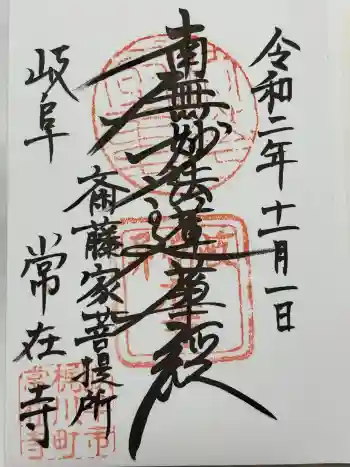 令和二年十一月一日
南無妙法蓮華経
斎藤家菩提所
岐阜
常在寺